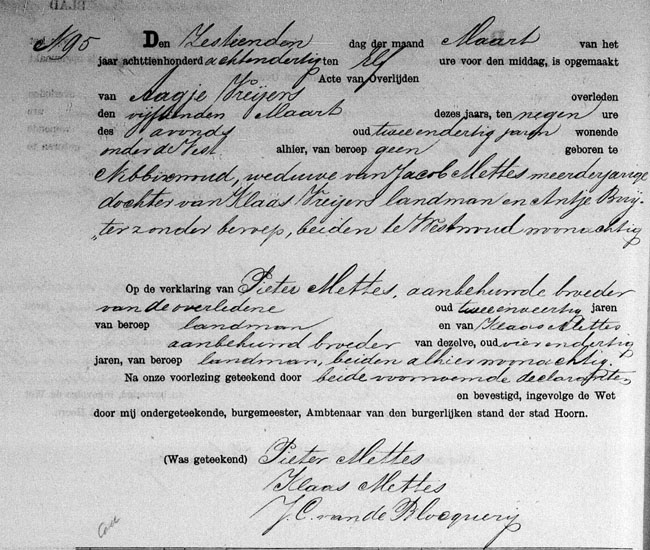 N 95 Den Zestienden dag der maand Maart van het
jaar achttienhonderd achtendertig ten Elf ure voor den middag, is opgemaakt
Acte van Overlijden
van Aagje Vreijers overleden
den vijftienden Maart dezes jaars, ten negen ure
des avonds oud tweeendertig jaren wonende
onder de Vest alhier, van beroep geen geboren te
Nibbixwoud, weduwe van Jacob Mettes meerderjarige
dochter van Klaas Vreijers landman en Antje Bruij-
ter zonder beroep, beiden te Westwoud woonachtig
Op de verklaring van Pieter Mettes, aanbehuwde broeder
van de overledene oud tweeenveertig jaren
van beroep landman en van Klaas Mettes
aanbehuwd broeder van dezelve, oud vierendertig
jaren, van beroep landman, beiden alhier woonachtig.
Na onze voorlezing geteekend door beide voornoemde declaranten
en bevestigd, ingevolge de Wet
door mij ondergeteekende, burgemeester, Ambtenaar van den burgerlijken stand der stad Hoorn.
(Was geteekend) Pieter Mettes
Klaas Mettes
J.C. van de Blocquery